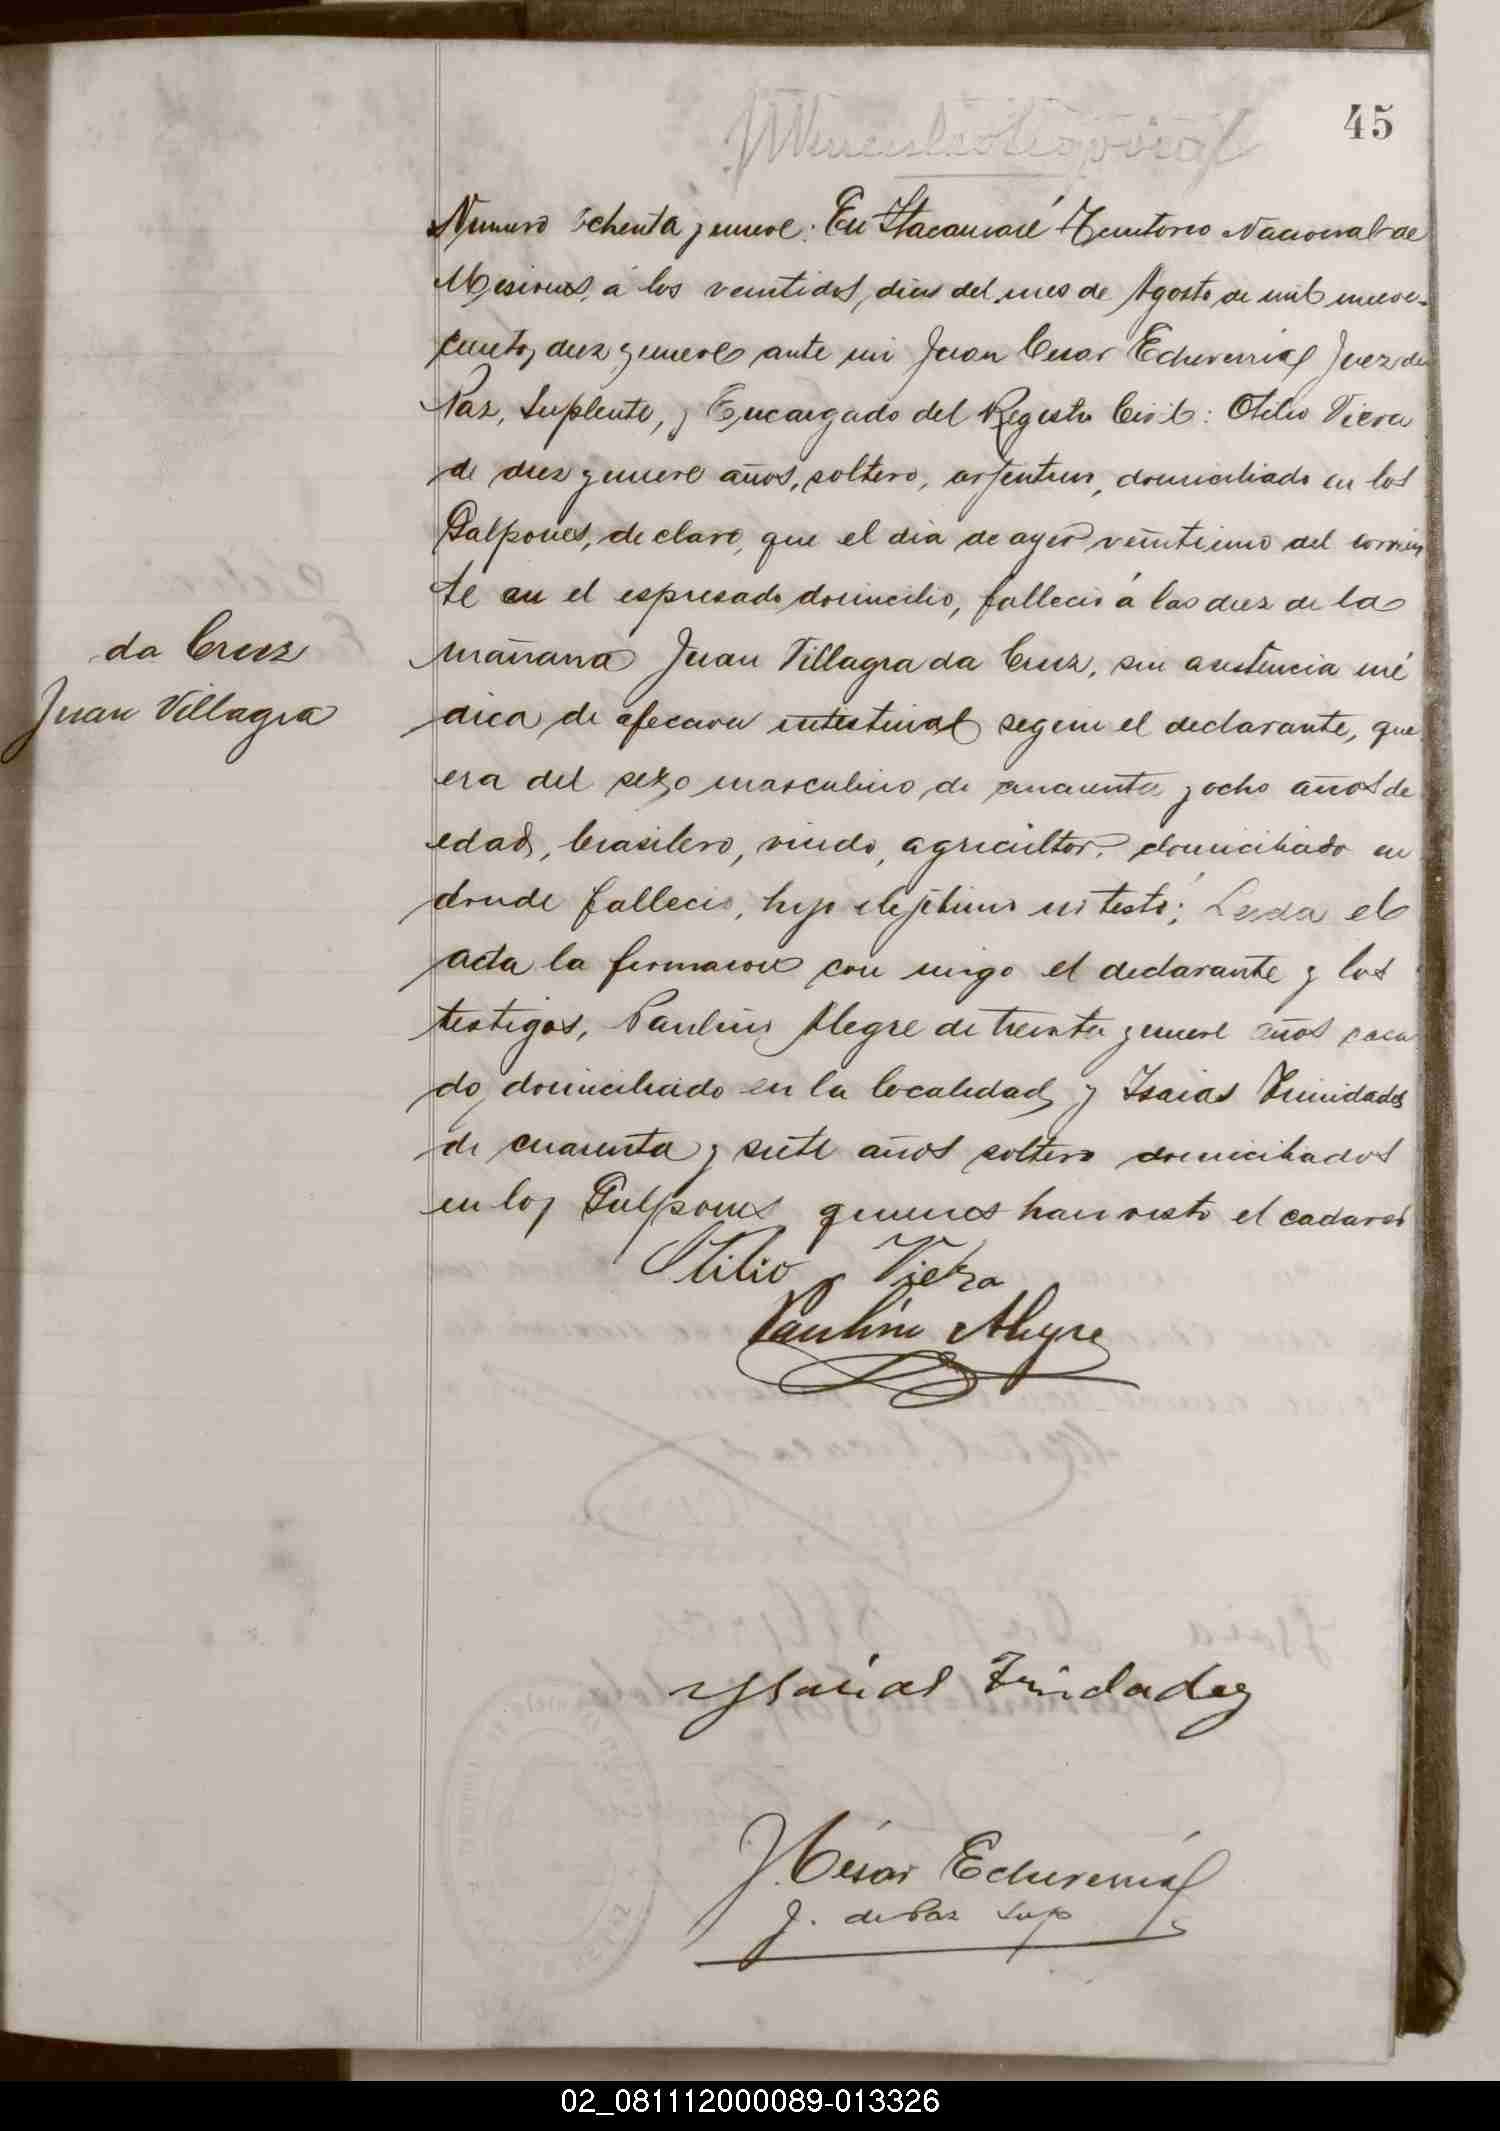 45
Numero ochenta y nueve: En Itacaruaré Territorio Nacional de
Misiones, á los veintidos dias del mes de Agosto de mil nueve-
cientos diez y nueve ante mi Juan Cesar Echeverria Juez de
Paz, Suplente, y Encargado del Registro Civil: Otilio Viera
de diez y nueve años, soltero, arjentino, domiciliado en los
Galpones, declaro, que el dia de ayer veintiuno del corrien
te en el espresado domicilio, fallecio á las diez de la
mañana Juan Villagra da Cruz, sin asistencia mé
dica de afeccion intestinal segun el declarante, que
era del sexo masculino de cincuenta y ocho años de
edad, brasilero, viudo, agricultor, domiciliado en
donde fallecio, hijo ilejitimo no testó; Leida el
acta la firmaron con migo el declarante y los
testigos, Paulino Alegre de treinta y nueve años casa
do, domiciliado en la localidad y Isaias Trinidades
de cuarenta y siete años soltero domiciliados
en los Galpones quienes han visto el cadaver
da Cruz
Juan Villagra
Otilio Viera
Paulino Alegre
Ysaias Trindadez
J. César Echeverria
J. de Paz Sup
02_081112000089-013326